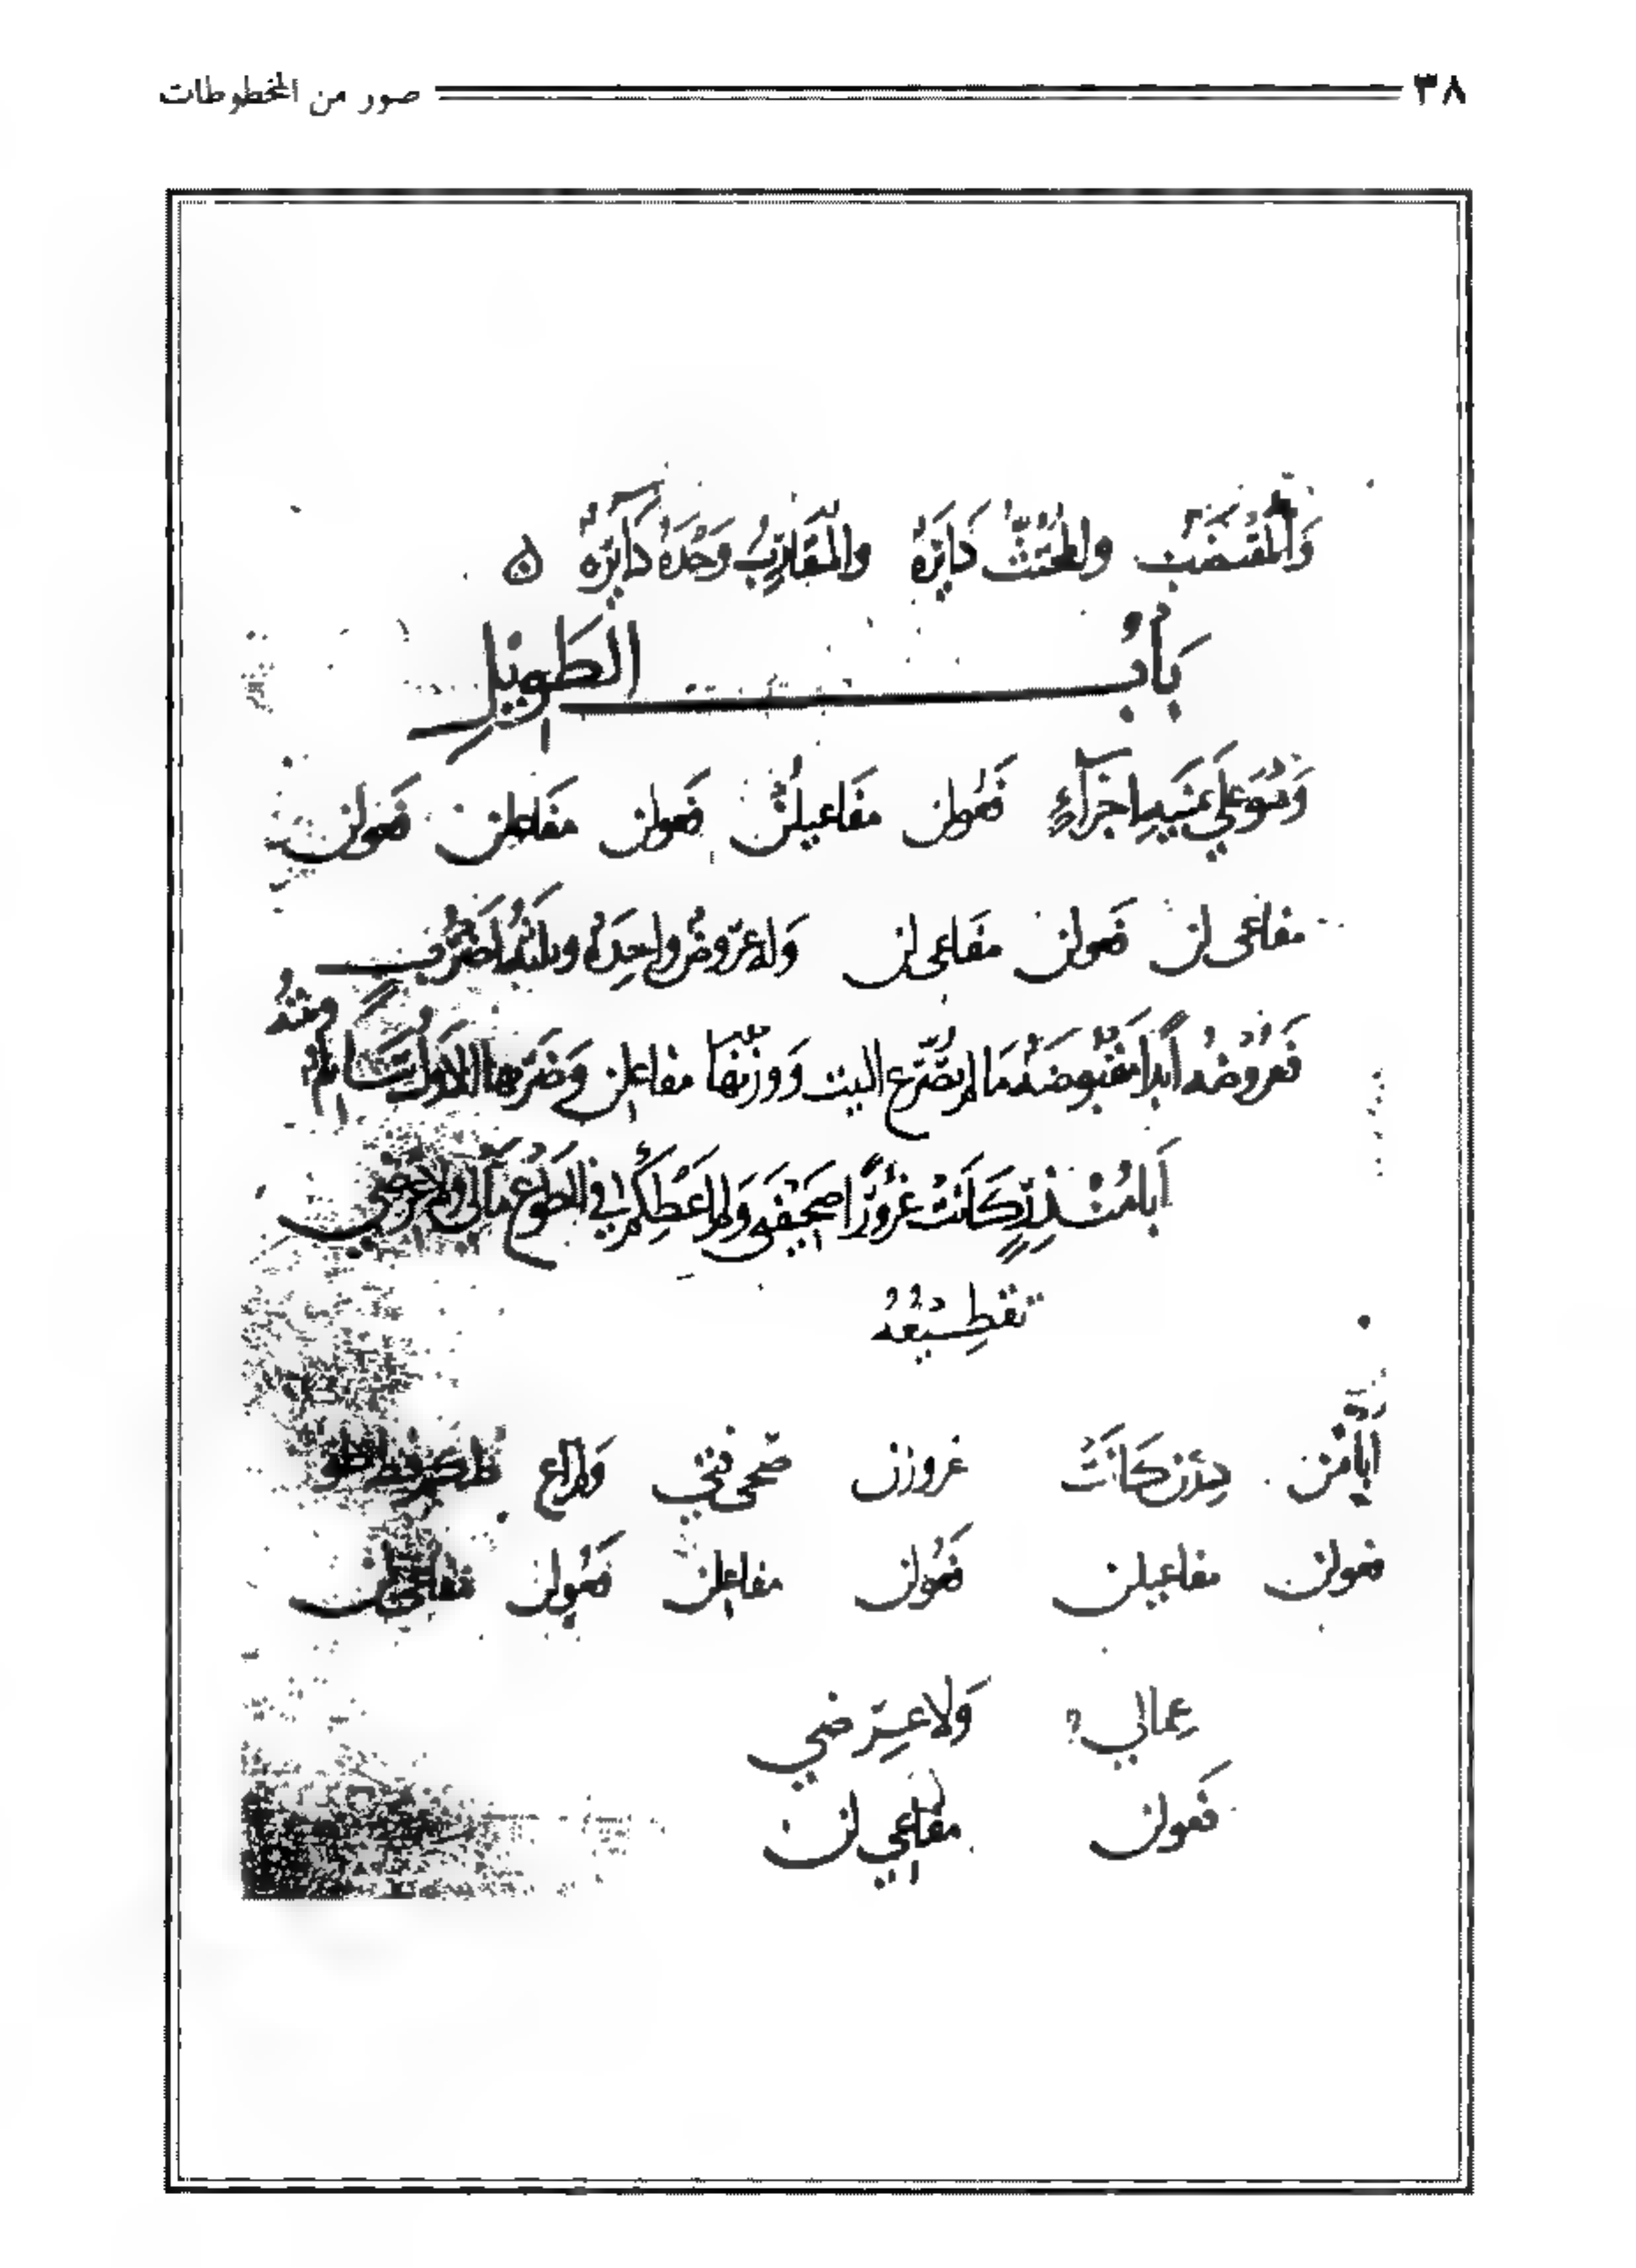 ٣٨ صور من المخطوطات
وَالمُقتَضَبُ والمُجتَثُّ دَائرَةٌ والمُتَقَارِبُ وَحْدَهُ دَائِرَةٌ ه
بَابُ الطَّوِيلِ
وَهُوَ عَلَى ثمَنِيَةِ اجزَآءٍ فَعُولن مفَاعيلُن فَعولن مَفَاعيلن فَعولن
مفَاعى لن فَعولن مفَاعى لن وَله عَرُوضٌ وَاحِدَةٌ وثلثَةُ اَضرُبٍ
فَعَرُوضُه اَبَدًا مَقْبُوضَةٌ مَا لم يُصَرَّع البيت وَوزنُها مفاعلن وَضَربها الاوَّل سَالم وبيتُهُ
اَبا مُنْذِرٍ كَانَتْ غُرُورًا صَحِيْفَتي وَلم اُعْطِكُم في الطَّوْعِ مَالي وَلا عِرْضي
تقطِيْعُهُ
اَبَا مُن ذِرِن كَانَتْ غرورن صَحى فتي وَلم اُع طِكم فططو
فعولن مفاعيلن فَعُولن مفاعلن فَعُولن مفاعى لن
عِمالي وَلا عِرْ ضي
فَعولن مفاعي لن